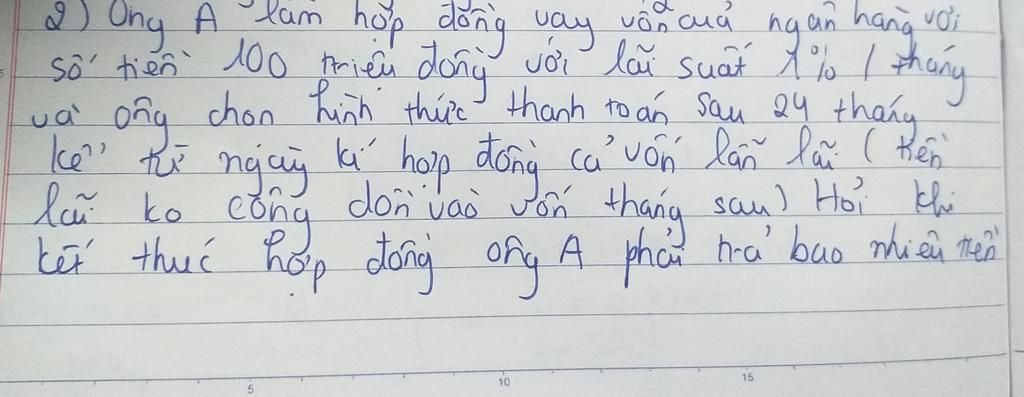 2) Ông A làm hợp đồng vay vốn của ngân hàng với
số tiền 100 triệu đồng với lãi suất 1% / tháng
và ông chọn hình thức thanh toán sau 24 tháng
kể từ ngày kí hợp đồng cả vốn lẫn lãi (tiền
lãi ko cộng dồn vào vốn tháng sau) Hỏi khi
kết thúc hợp đồng ông A phải trả bao nhiêu tiền
5 10 15